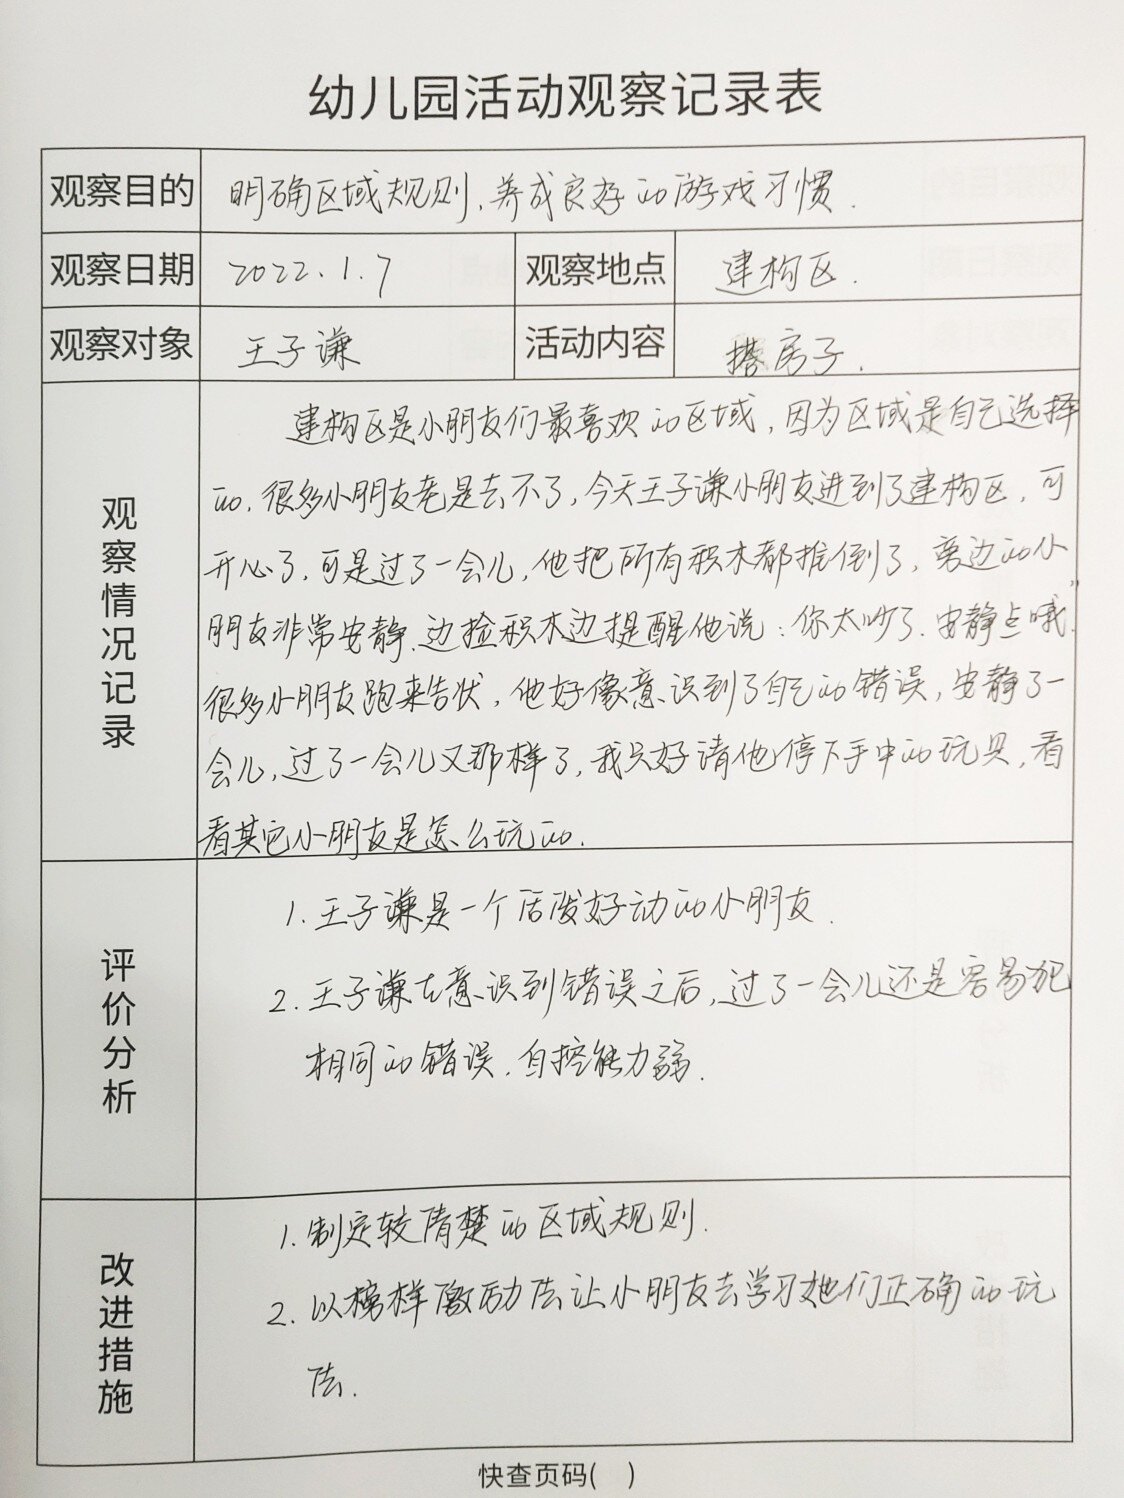 幼儿园活动观察记录表
观察目的 明确区域规则,养成良好的游戏习惯.
观察日期 2022.1.7 观察地点 建构区.
观察对象 王子谦 活动内容 搭房子.
观察情况记录
建构区是小朋友们最喜欢的区域,因为区域是自己选择
的.很多小朋友老是去不了,今天王子谦小朋友进到了建构区,可
开心了,可是过了一会儿,他把所有积木都推倒了,旁边的小
朋友非常安静.边捡积木边提醒他说:你太吵了.安静点哦"
很多小朋友跑来告状,他好像意识到了自己的错误,安静了一
会儿,过了一会儿又那样了,我只好请他停下手中的玩具,看
看其它小朋友是怎么玩的.
评价分析
1.王子谦是一个活泼好动的小朋友.
2.王子谦在意识到错误之后,过了一会儿还是容易犯
相同的错误.自控能力弱.
改进措施
1.制定较清楚的区域规则.
2.以榜样激励法让小朋友去学习她们正确的玩
法.
快查页码( )